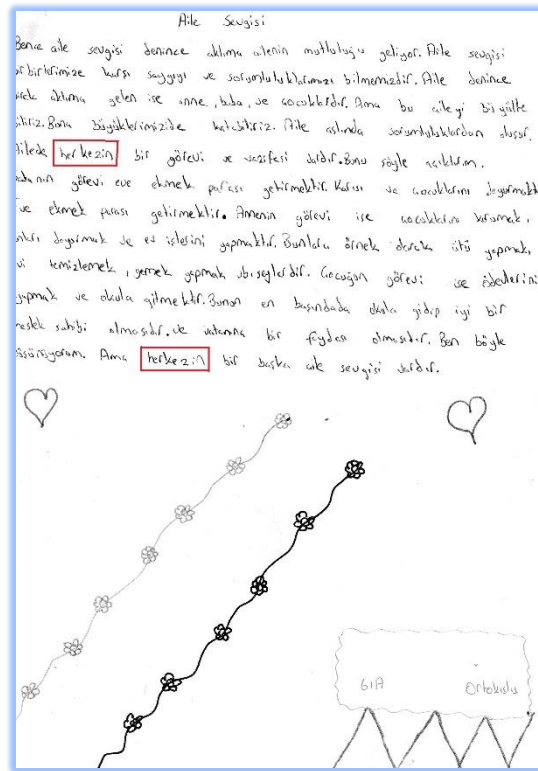 Aile Sevgisi
Bence aile sevgisi denince aklıma ailenin mutluluğu geliyor. Aile sevgisi
birbirlerimize karşı saygıyı ve sorumluluklarımızı bilmemizdir. Aile denince
aklıma gelen ise anne, baba, ve çocuklardır. Ama bu aileyi
Buna büyüklerimizide katabiliriz. Aile aslında sorumluluklardan oluşur.
Ailede herkezin bir görevi ve vazifesi vardır. Bunu şöyle açıklarım.
Babanın görevi eve ekmek parası getirmektir. Karısı ve çocuklarını doyurmakt
ve ekmek parası getirmektir. Annenin görevi ise çocuklarını korumak,
onları doyurmak ve ev işlerini yapmaktır. Bunlara örnek olarak ütü yapmak,
evi temizlemek, yemek yapmak vb. şeylerdir. Çocuğun görevi ise ödevlerini
yapmak ve okula gitmektir. Bunun en başındada okula gidip iyi bir
meslek sahibi olmasıdır. ve vatanına bir faydası olmasıdır. Ben böyle
düşünüyorum. Ama herkezin bir başka aile sevgisi vardır.
61A Ortokulu